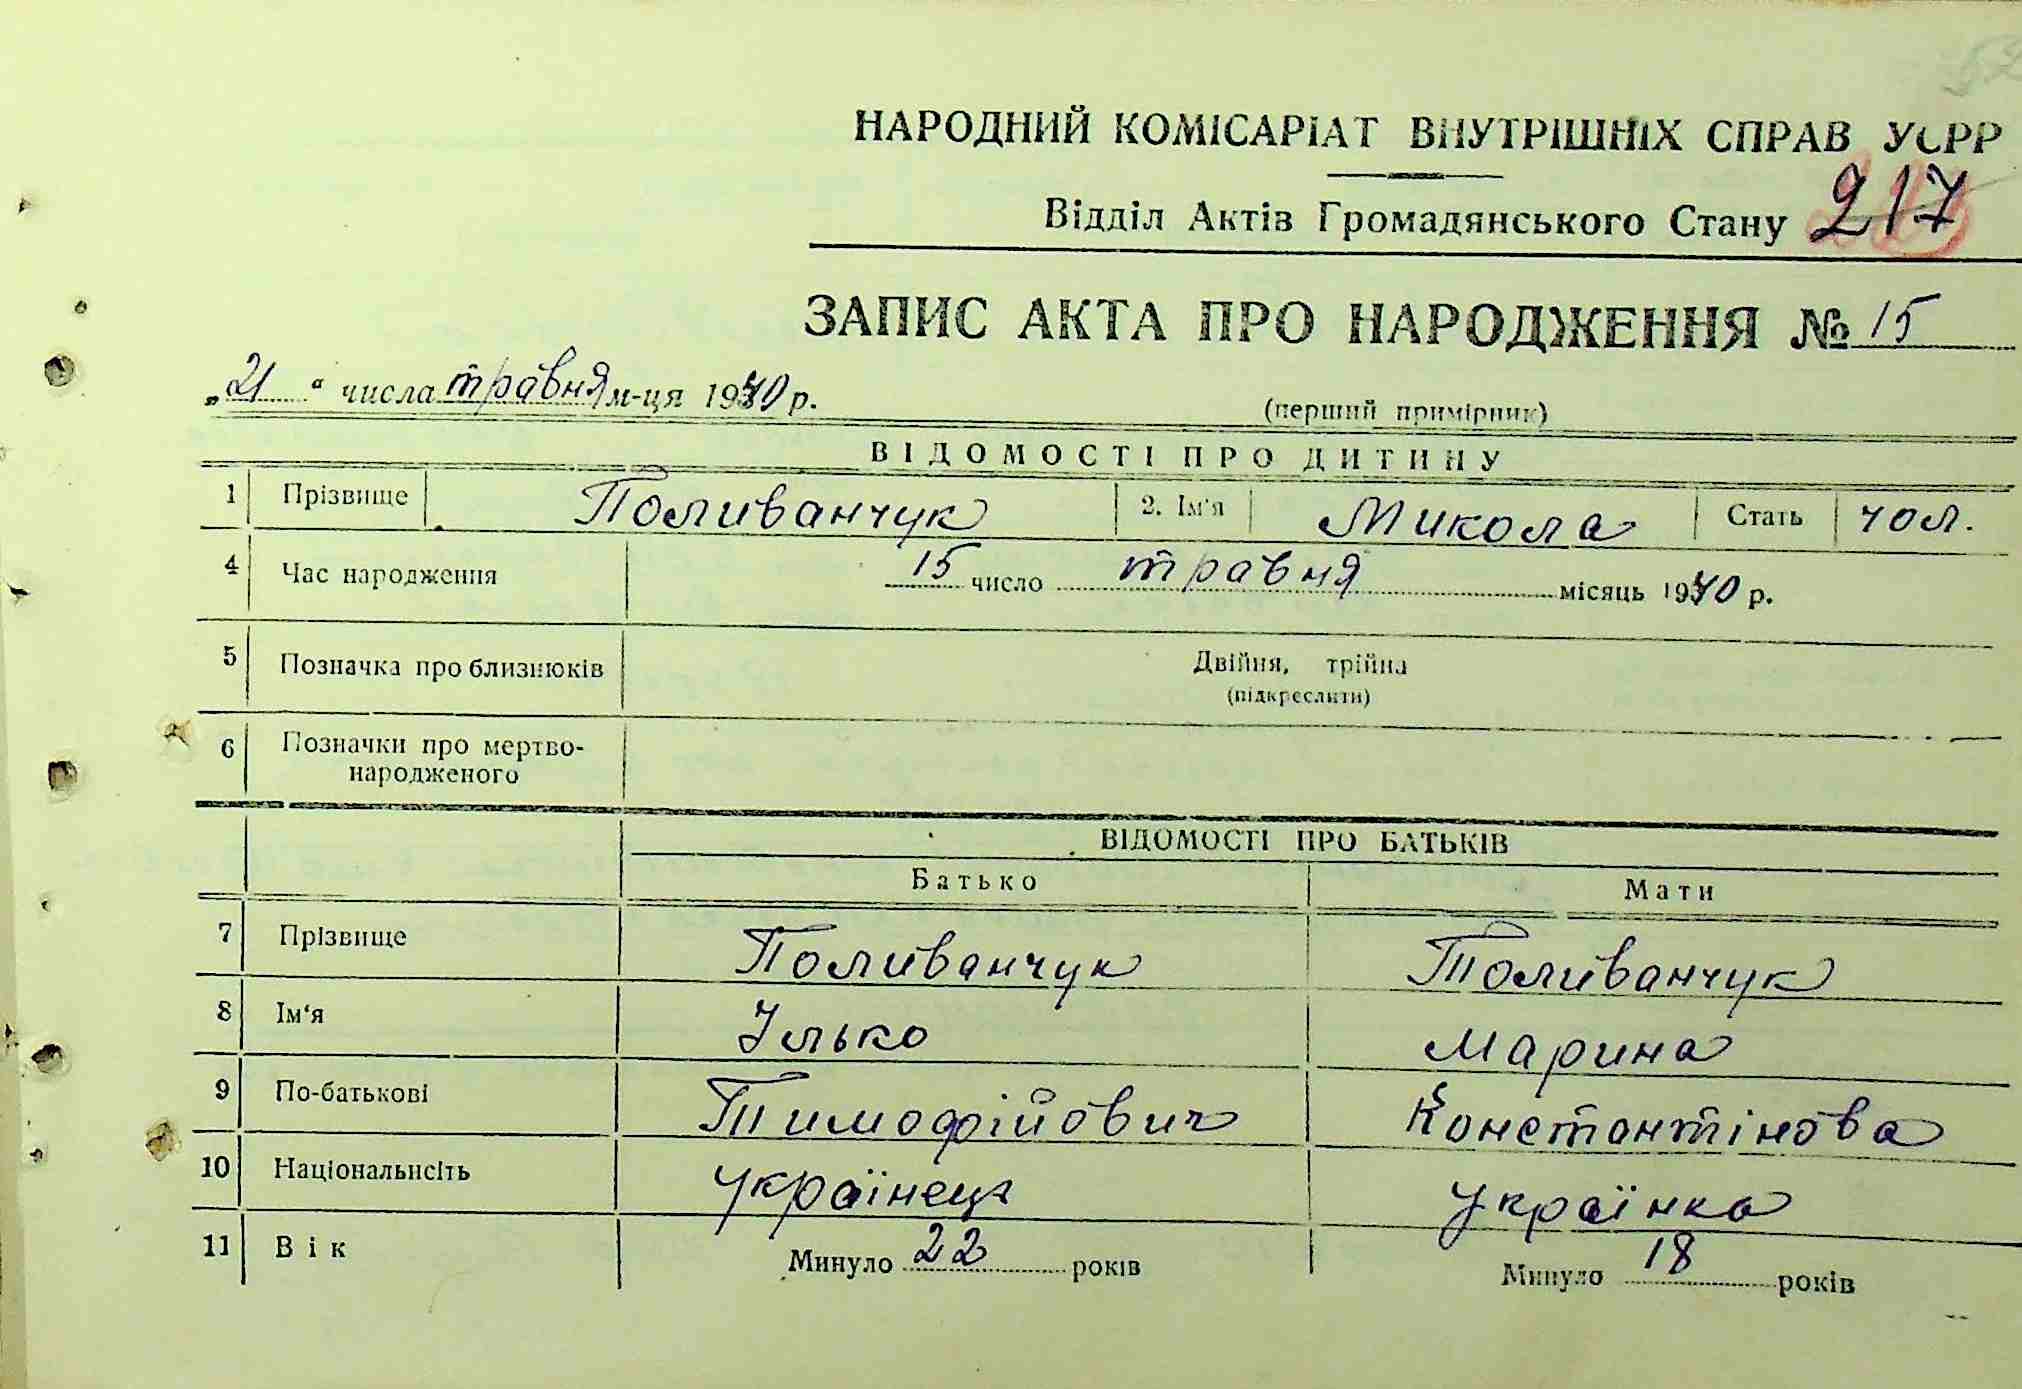 НАРОДНИЙ КОМІСАРІАТ ВНУТРІШНІХ СПРАВ УСРР
Відділ Актів Громадянського Стану 217
ЗАПИС АКТА ПРО НАРОДЖЕННЯ № 15
„21“ числа травня м-ця 1940 р.
(перший примірник)
ВІДОМОСТІ ПРО ДИТИНУ
1 Прізвище Поливанчук 2. Ім'я Микола Стать чол.
4 Час народження 15 число травня місяць 1940 р.
5 Позначка про близнюків Двійня, трійна
(підкреслити)
6 Позначки про мертво-
народженого
ВІДОМОСТІ ПРО БАТЬКІВ
Батько Мати
7 Прізвище Поливанчук Поливанчук
8 Ім'я Ілько Марина
9 По-батькові Тимофійович Константінова
10 Національнсіть українець українка
11 Вік Минуло 22 років Минуло 18 років